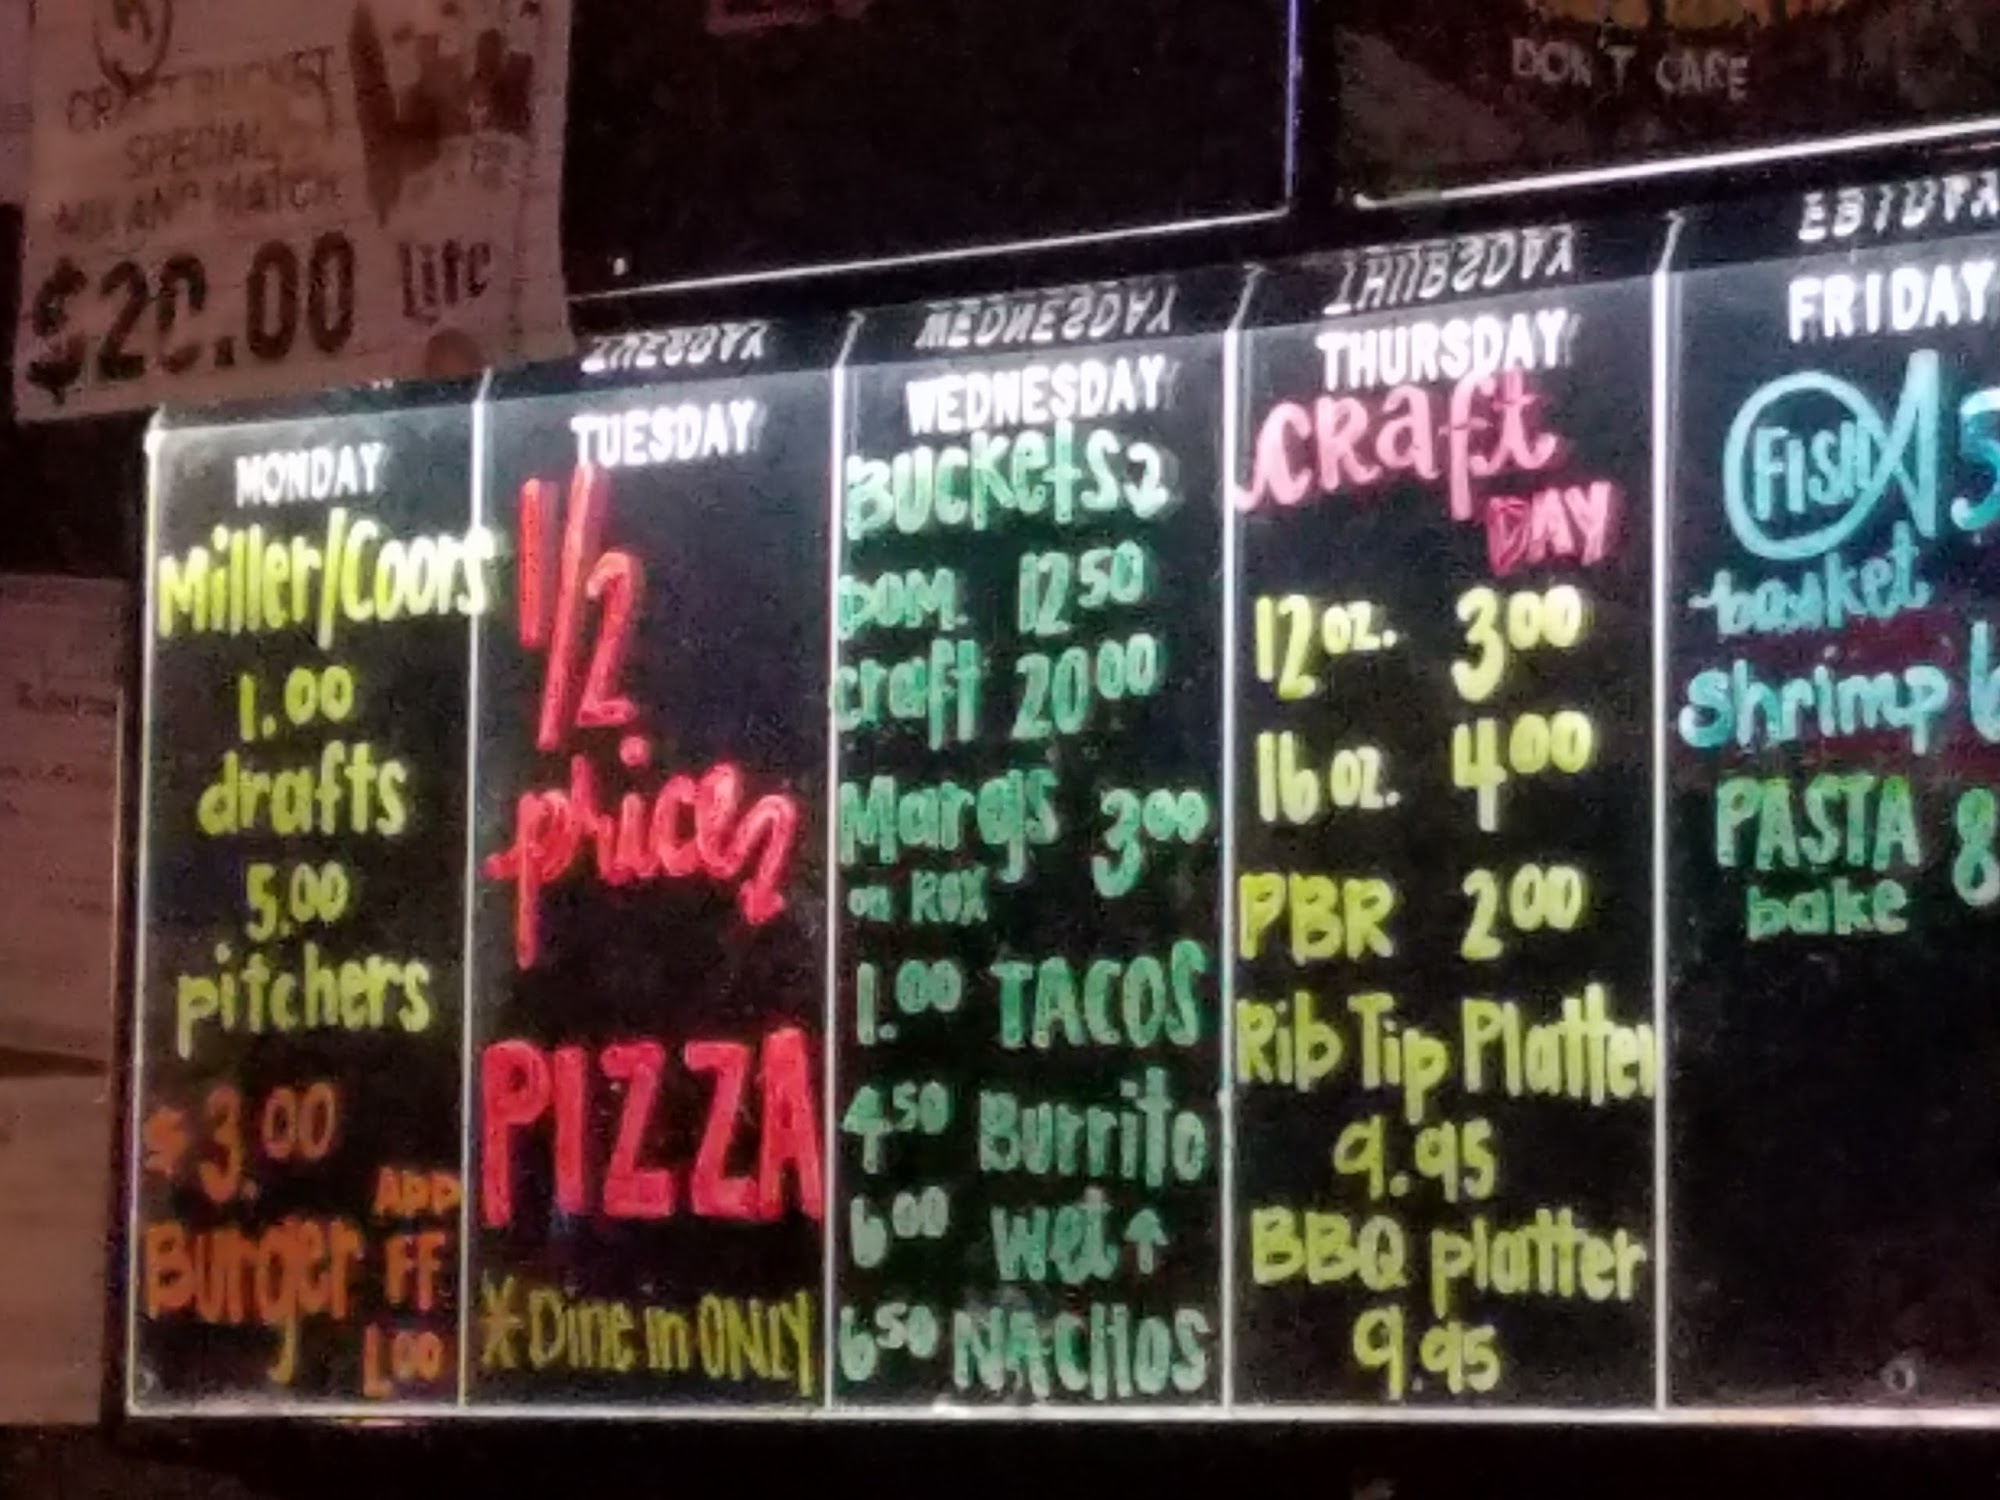 SPECIAL
MIX AND MATCH
$20.00 Lite
DON'T CARE
MONDAY
Miller/Coors
1.00
drafts
5.00
pitchers
$3.00
Burger
ADD
FF
1.00
TUESDAY
1/2
prices
PIZZA
*Dine in ONLY
WEDNESDAY
Buckets
DOM. 12.50
craft 20.00
Margs 3.00
on ROX
1.00 TACOS
4.50 Burrito
6.00 wet ↑
6.50 NACHOS
THURSDAY
craft
DAY
12 oz. 3.00
16 oz. 4.00
PBR 2.00
Rib Tip Platter
9.95
BBQ platter
9.95
FRIDAY
FISH
basket
Shrimp
PASTA 8
bake